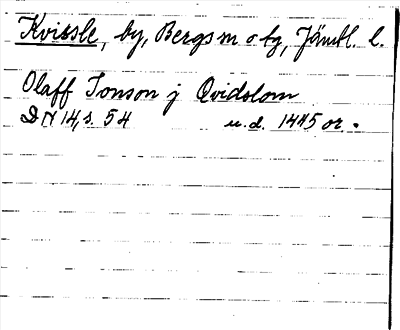 Kvissle, by, Bergs sn o tg, Jämtl. l.
Olaff Jonson j Qvidslom
DN 14, s. 54 u.d. 1445 or.